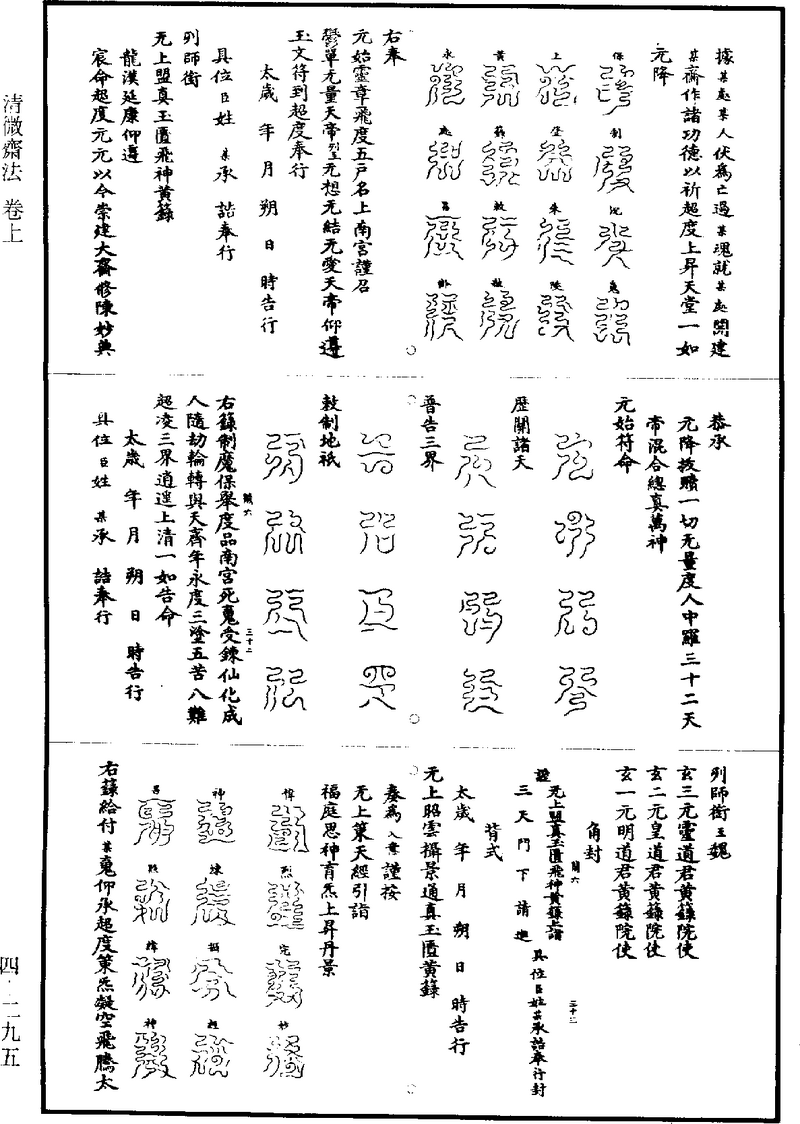 據某處某人伏爲亡過某魂就某處開建
某齋作諸功德以祈超度上昇天堂一如
元降
保 制 沉 鬼
上 登 朱 陵
黃 籙 救
永 處 昌
右奉
元始靈章飛度五戶名上南宮謹召
鬱單无量天帝列玉元想无結无愛天帝仰遵
玉文符到超度奉行
太歲 年 月 朔 日 時告行
具位臣姓 某承 誥奉行
列師銜
无上盟真玉匱飛神黃籙
龍漢延康仰遵
宸命超度元元以今崇建大齋修陳妙典
恭承
元降拔贖一切无量度人中羅三十二天
帝混合總真萬神
元始符命
歷關諸天
普告三界
敕制地祇
右籙制魔保舉度品南宮死䰟受鍊仙化成
人隨劫輪轉與天齊年永度三塗五苦八難
超凌三界逍遙上清一如告命
太歲 年 月 朔 日 時告行
具位臣姓 某承 誥奉行
列師銜王魏
玄三元靈道君黃籙院使
玄二元皇道君黃籙院使
玄一元明道君黃籙院使
角封
謹 无上盟真玉匱飛神黃籙上請
三天門下請進 具位臣姓某承誥奉行封
背式
太歲 年 月 朔 日 時告行
元上昭雲攝景通真玉匱黃籙
奏爲 入意 謹按
无上策天經引詣
福庭思神育炁上昇丹景
神
神
右籙給付某䰟仰承超度策炁凝空飛騰太
清微齋法 卷上
四·二九五